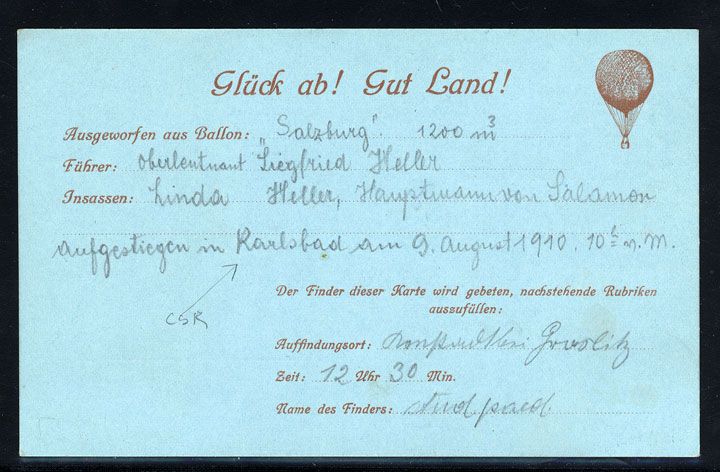 Glück ab! Gut Land!
Ausgeworfen aus Ballon: „Salzburg". 1200 m³
Führer: Oberleutnant Siegfried Heller
Insassen: Linda Heller, Hauptmann von Salamon
aufgestiegen in Karlsbad am 9. August 1910. 10h v. M.
CSR
Der Finder dieser Karte wird gebeten, nachstehende Rubriken
auszufüllen:
Auffindungsort: bei Graslitz
Zeit: 12 Uhr 30 Min.
Name des Finders: